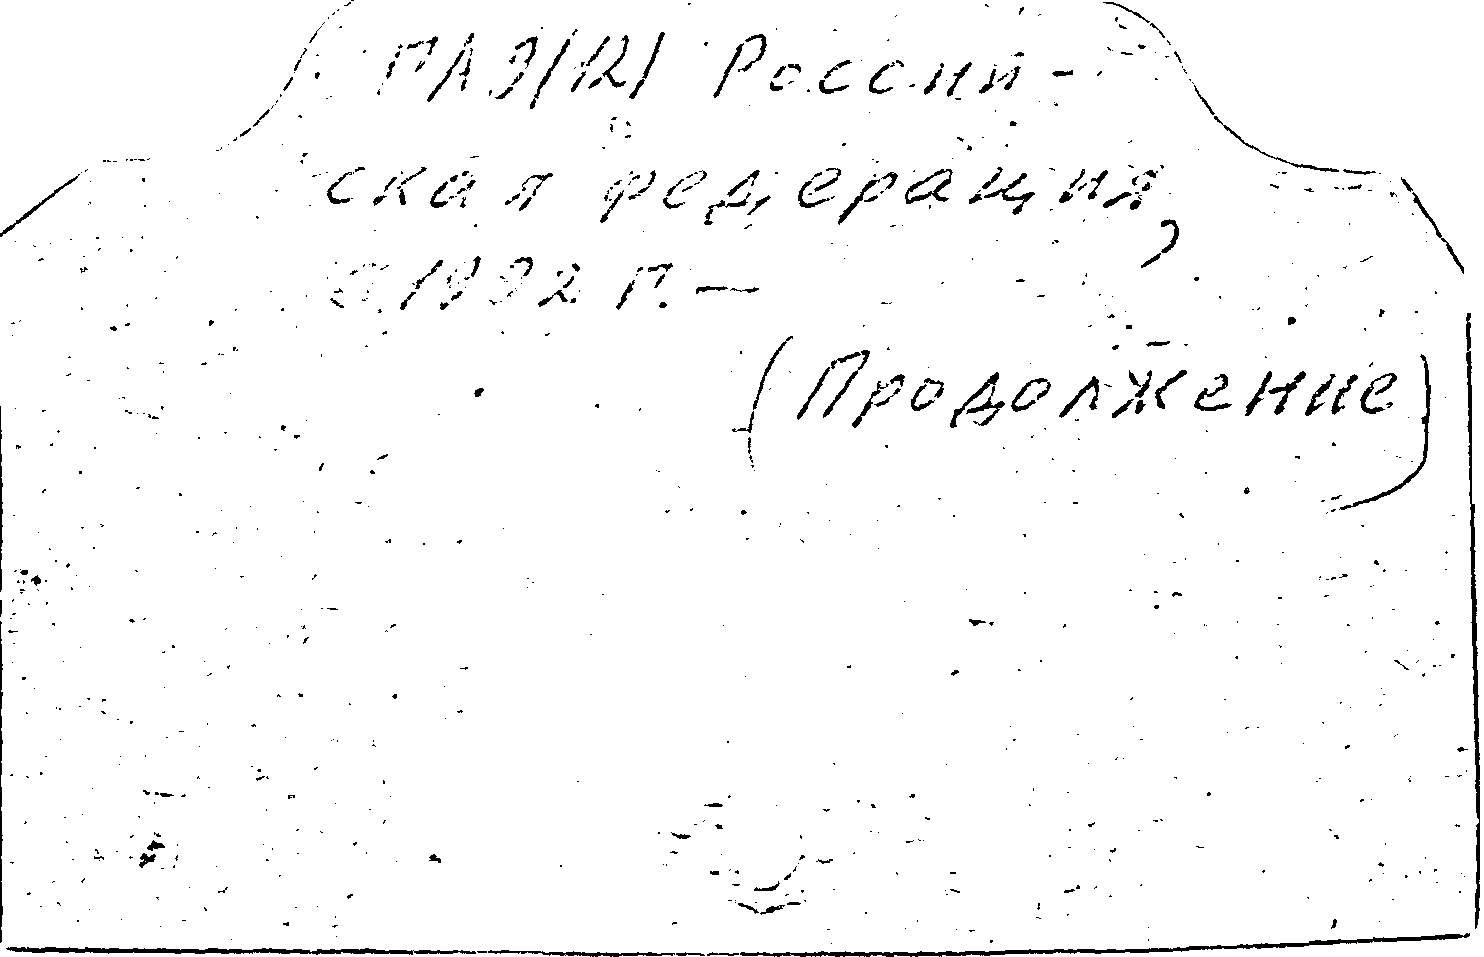 ПАЭ/12/ Россий-
ская федерация,
с 1992 г. —
(Продолжение)